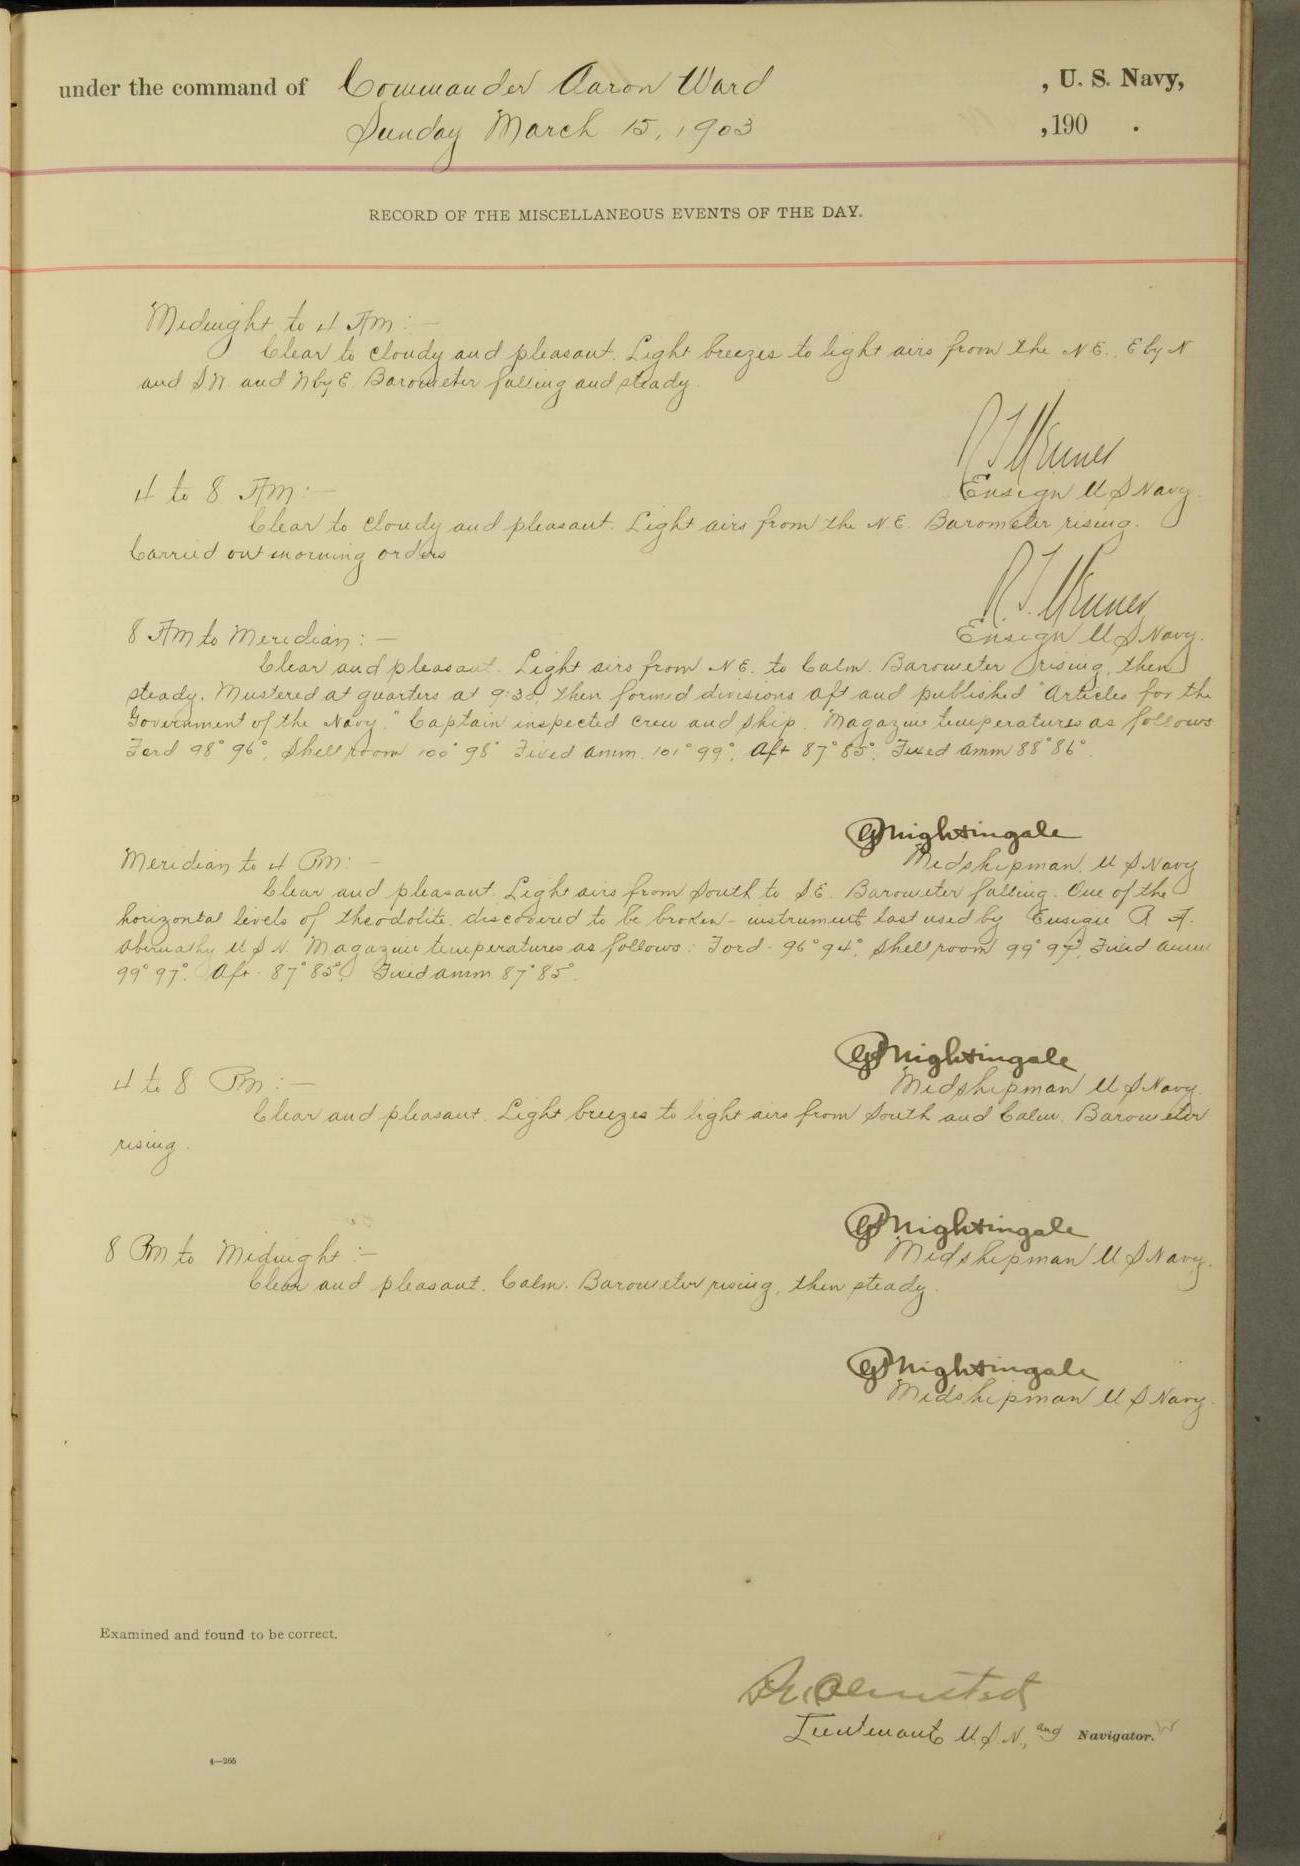 under the command of Commander Aaron Ward , U. S. Navy,
Sunday March 15, 1903 , 190 .
RECORD OF THE MISCELLANEOUS EVENTS OF THE DAY.
Midnight to 4 AM:—
Clear to cloudy and pleasant. Light breezes to light airs from the NE., E by N
and SW. and N by E. Barometer falling and steady.
Ensign U S Navy.
4 to 8 AM:—
Clear to cloudy and pleasant. Light airs from the N.E. Barometer rising.
Carried out morning orders
Ensign U S Navy.
8 AM to Meridian:—
Clear and pleasant. Light airs from NE. to Calm. Barometer rising, then
steady. Mustered at quarters at 9:30, then formed divisions aft and published "Articles for the
Government of the Navy." Captain inspected crew and ship. Magazine temperatures as follows
Ford 98° 96°, Shell room 100° 98° Fixed amm. 101° 99°, Aft 87° 85°, Fixed amm 88° 86°.
G Nightingale
Midshipman. U S Navy
Meridian to 4 PM:—
Clear and pleasant. Light airs from South to S.E. Barometer falling. One of the
horizontal levels of theodolite discovered to be broken - instrument last used by Ensign R. F.
Abernathy U S N. Magazine temperatures as follows: Ford - 96° 94°, Shell room 99° 97°, Fixed amm
99° 97°. Aft - 87° 85°, Fixed amm. 87° 85°.
G Nightingale
Midshipman U S Navy.
4 to 8 PM:—
Clear and pleasant. Light breezes to light airs from South and Calm. Barometer
rising.
G Nightingale
Midshipman U S Navy.
8 PM to Midnight:—
Clear and pleasant. Calm. Barometer rising, then steady.
G Nightingale
Midshipman U S Navy.
Examined and found to be correct.
Olmsted
Lieutenant U.S.N., and Navigator.
4—265